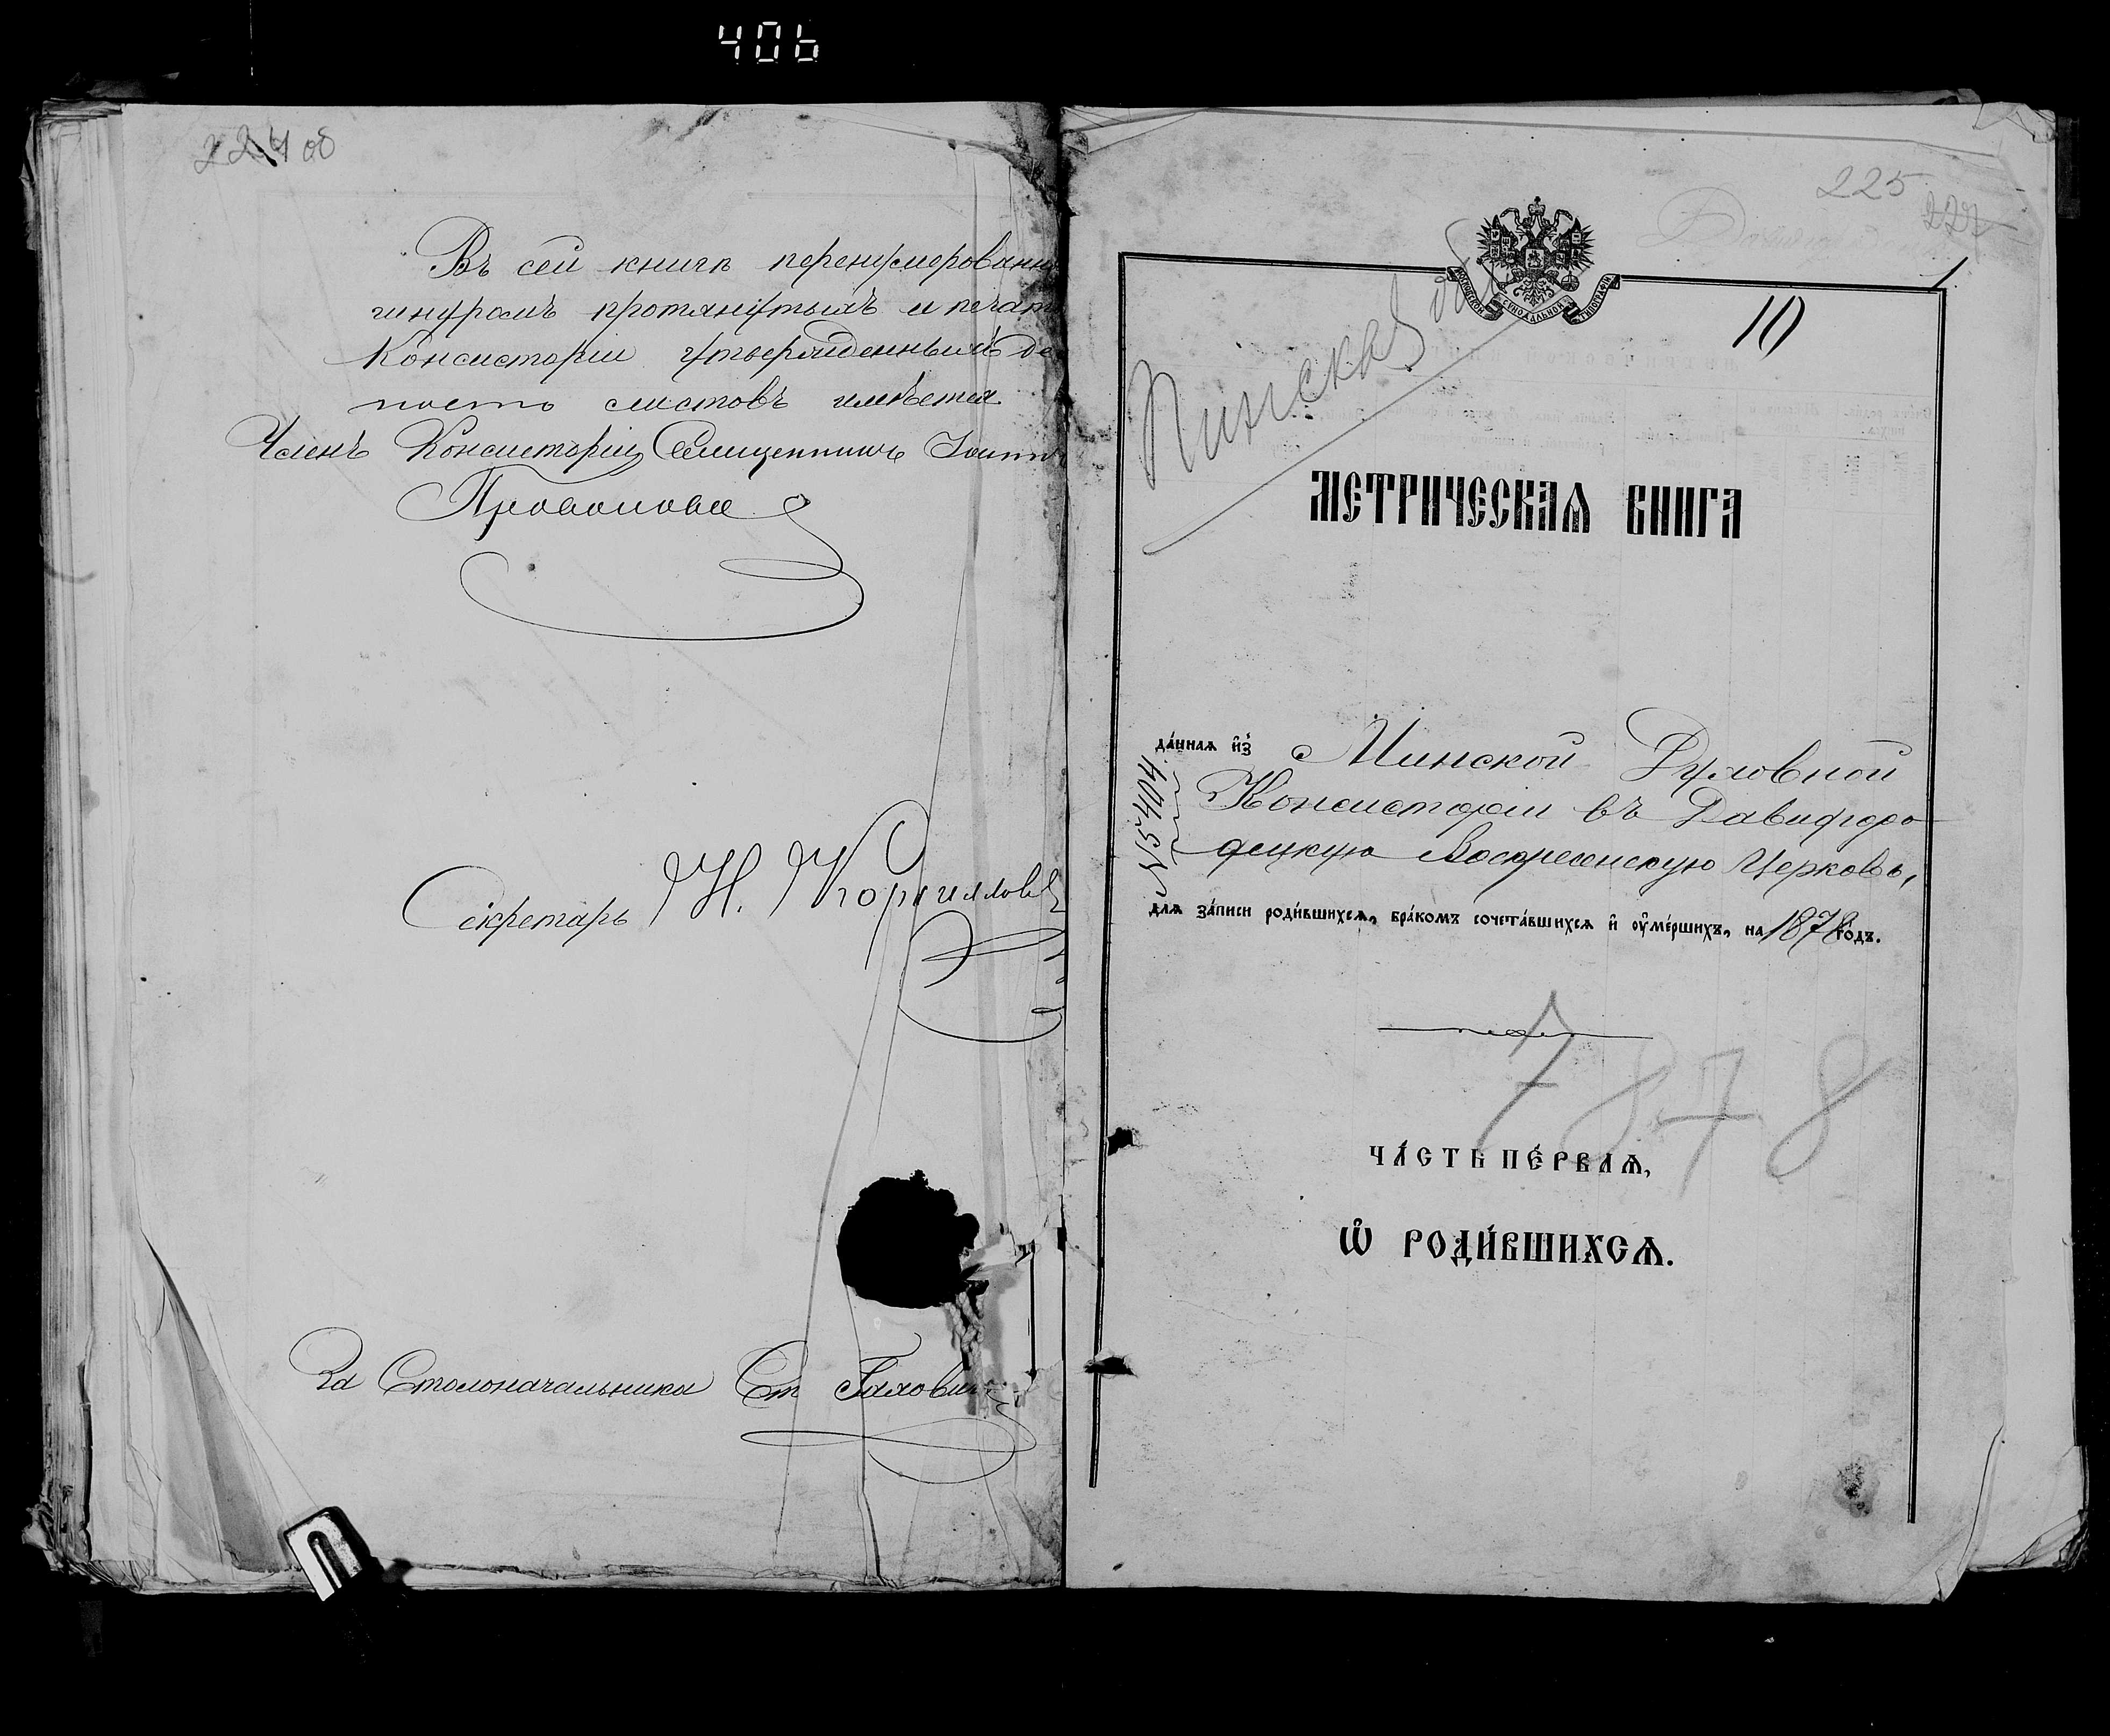 406
224 об
Въ сей книгѣ перенумерованн
шнуромъ протянутыхъ и печат
Консисторіи утвержденныхъ де
листовъ имѣется
Членъ Консисторіи Священникъ
Секретарь Н.
За Столоначальника Ст
225
227
МОСКОВСКОЙ СѴНОДАЛЬНОЙ ТИПОГРАФІИ
10
Пинская
МЕТРИЧЕСКАѦ КНИГА
да́ннаѧ и҆з̾ Минской Духовной
Консисторіи въ Давидгоро-
децкую Воскресенскую Церковь,
№ 5404.
для за́писи роди́вшихсѧ, бра́комъ сочета́вшихсѧ и҆ ᲂу҆ме́ршихъ, на 1878 го́дъ.
1878
ЧА́СТЬ ПЕ́РВАѦ,
Ѽ РОДИ́ВШИХСѦ.